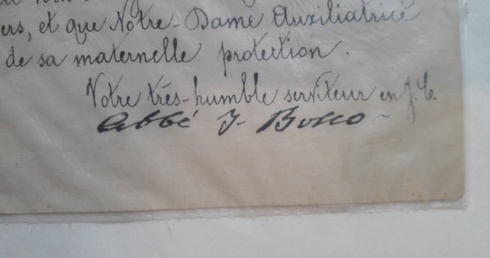 ers, et que Notre-Dame Auxiliatrice
de sa maternelle protection.
Votre très-humble serviteur en J. C.
Abbé J- Bosco